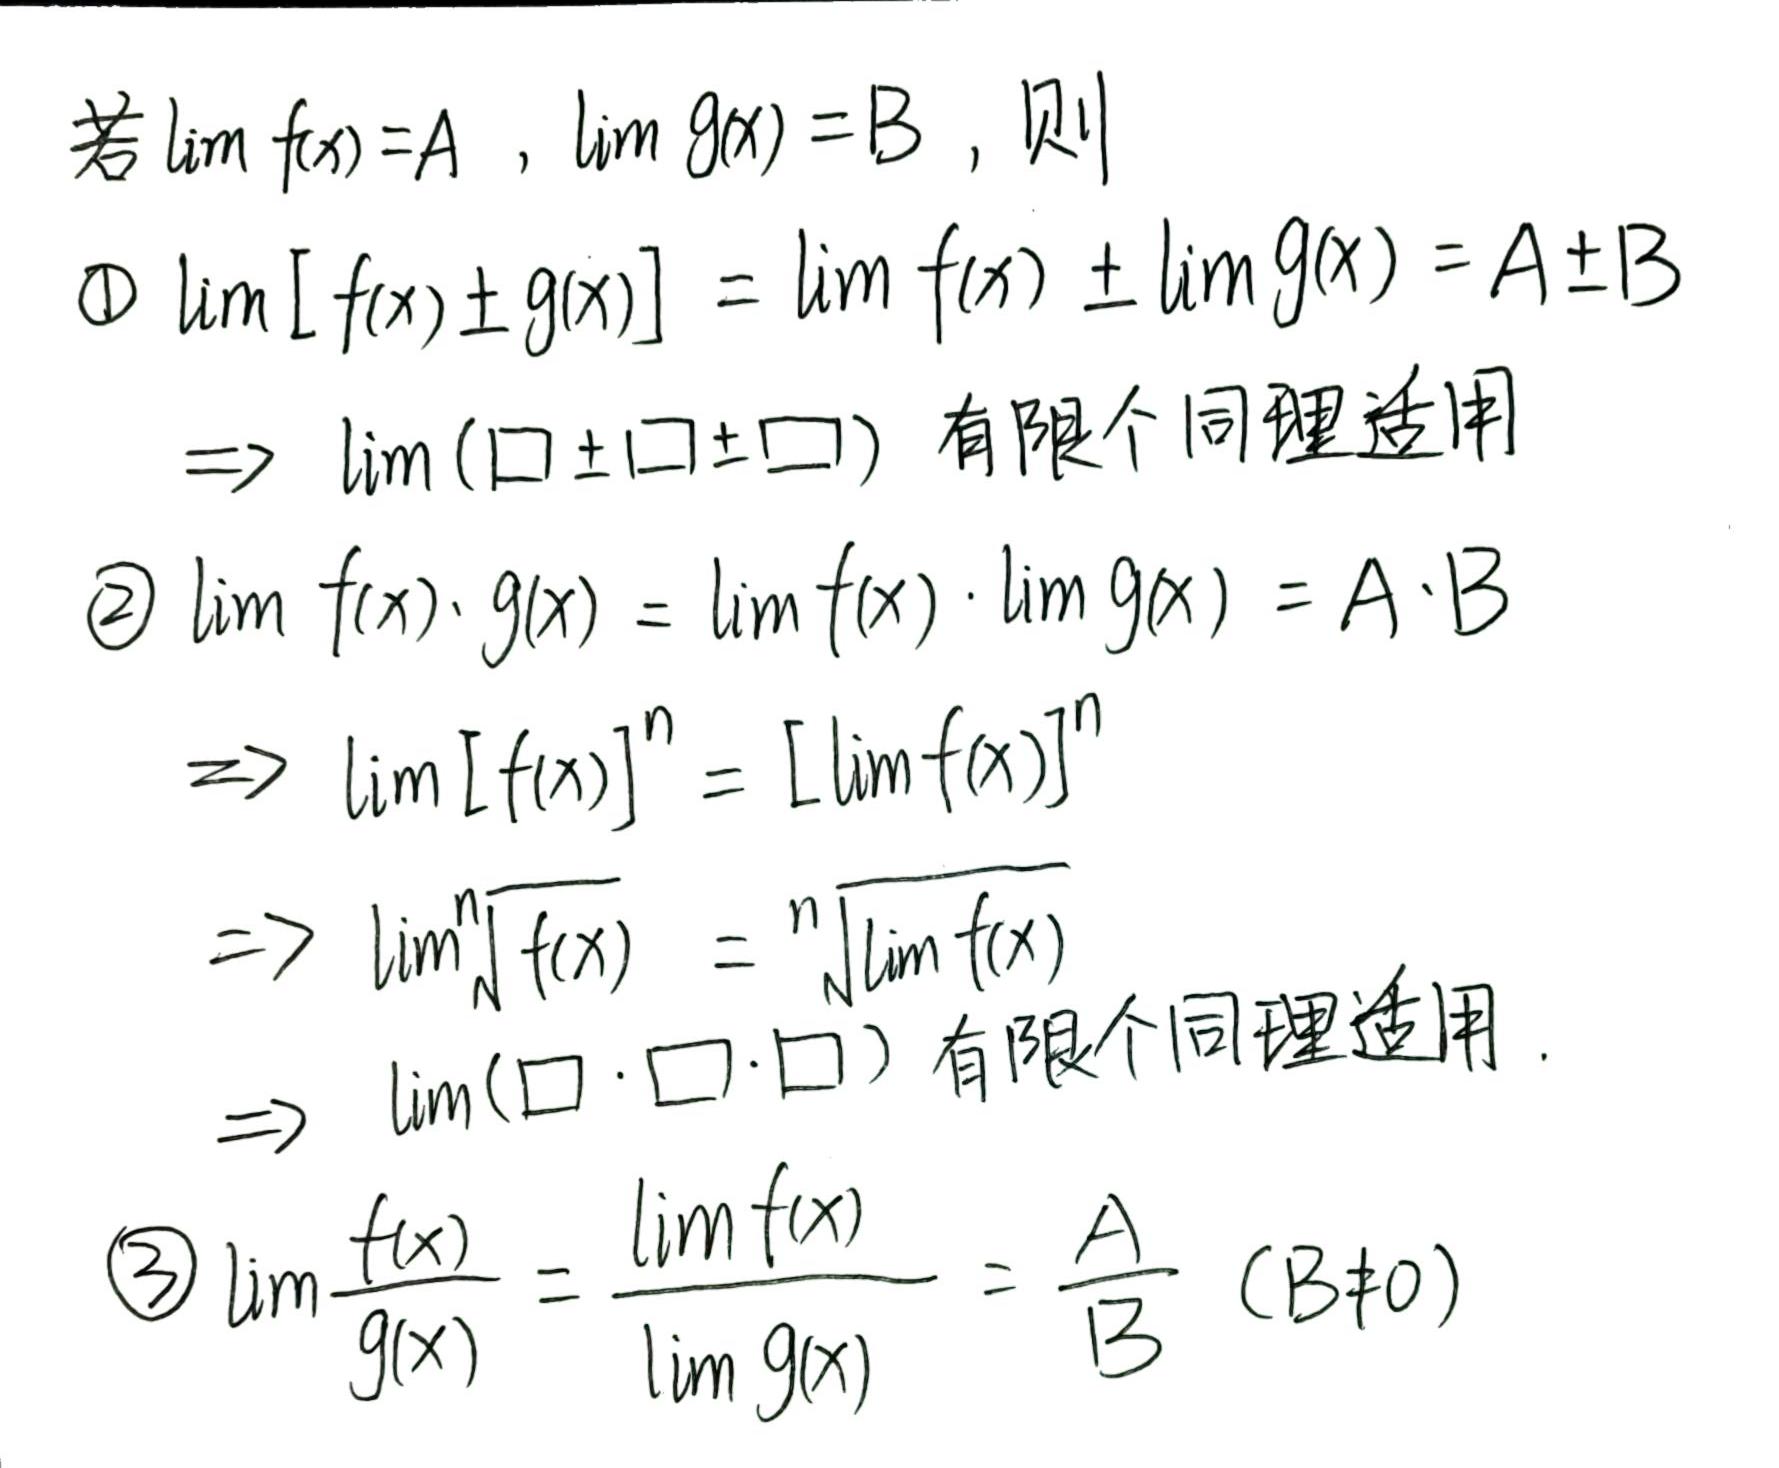 若 lim f(x) = A , lim g(x) = B , 则
① lim [ f(x) ± g(x) ] = lim f(x) ± lim g(x) = A ± B
=> lim ( □ ± □ ± □ ) 有限个同理适用
② lim f(x) · g(x) = lim f(x) · lim g(x) = A · B
=> lim [ f(x) ]ⁿ = [ lim f(x) ]ⁿ
=> lim ⁿ√f(x) = ⁿ√lim f(x)
=> lim ( □ · □ · □ ) 有限个同理适用 .
③ lim f(x)/g(x) = lim f(x)/lim g(x) = A/B (B≠0)